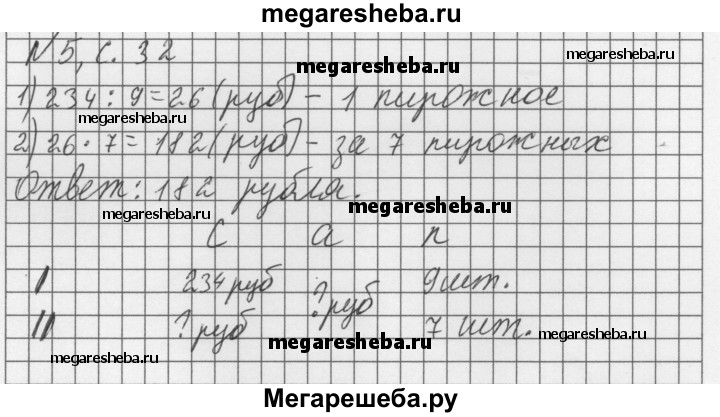 megaresheba.ru
N 5, с. 32
megaresheba.ru
megaresheba.ru
1) 234 : 9 = 26 (руб) - 1 пирожное
megaresheba.ru
2) 26 · 7 = 182 (руб) - за 7 пирожных
megaresheba.ru
Ответ: 182 рубля.
megaresheba.ru
megaresheba.ru
С а n
I 234 руб ? руб 9 шт.
II ? руб 7 шт.
megaresheba.ru
megaresheba.ru
megaresheba.ru
Мегарешеба.ру